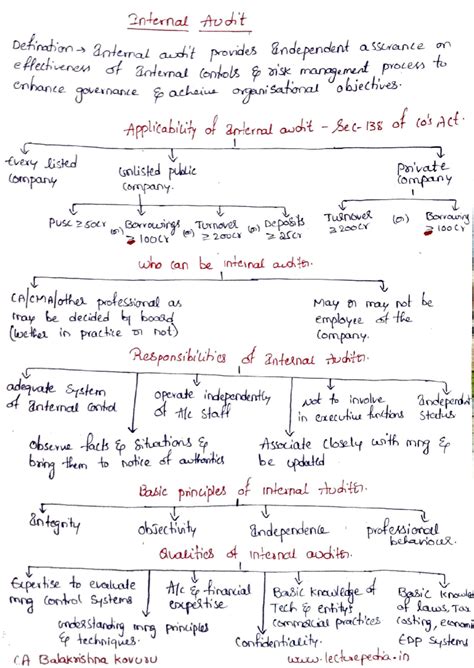 Internal Audit
Defination → Internal audit provides Independent assurance on
effectiveness of Internal Controls & risk management process to
enhance governance & acheive organisational objectives.
Applicability of Internal audit - Sec-138 of Co's Act.
Every listed company
Unlisted public company.
Private Company
PUSC ≥ 50Cr (or) Borrowings ≥ 100Cr (or) Turnover ≥ 200Cr (or) Deposits ≥ 25Cr
Turnover ≥ 200Cr (or) Borrowing ≥ 100Cr
Who can be internal auditor.
CA/CMA/other professional as
may be decided by board
(wether in practice or not)
May or may not be
employee of the
Company.
Responsibilities of Internal Auditor.
adequate System
of Internal Control
operate independently
of A/c Staff
not to involve
in executive functions
Independent
Status
Observe facts & Situations &
bring them to notice of
Associate closely with mng &
be updated
Basic principles of internal Auditor
Integrity
objectivity
Independence
professional
behaviour.
Qualities of Internal auditor.
Expertise to evaluate
mng Control Systems
A/c & financial
expertise
Basic knowledge of
Tech & entity's
commercial practices
Basic knowledge
of laws, Tax
costing, economic
EDP Systems
understanding mng principles
& techniques.
Confidentiality.
CA Balakrishna Kovuru
www.lecturepedia.in